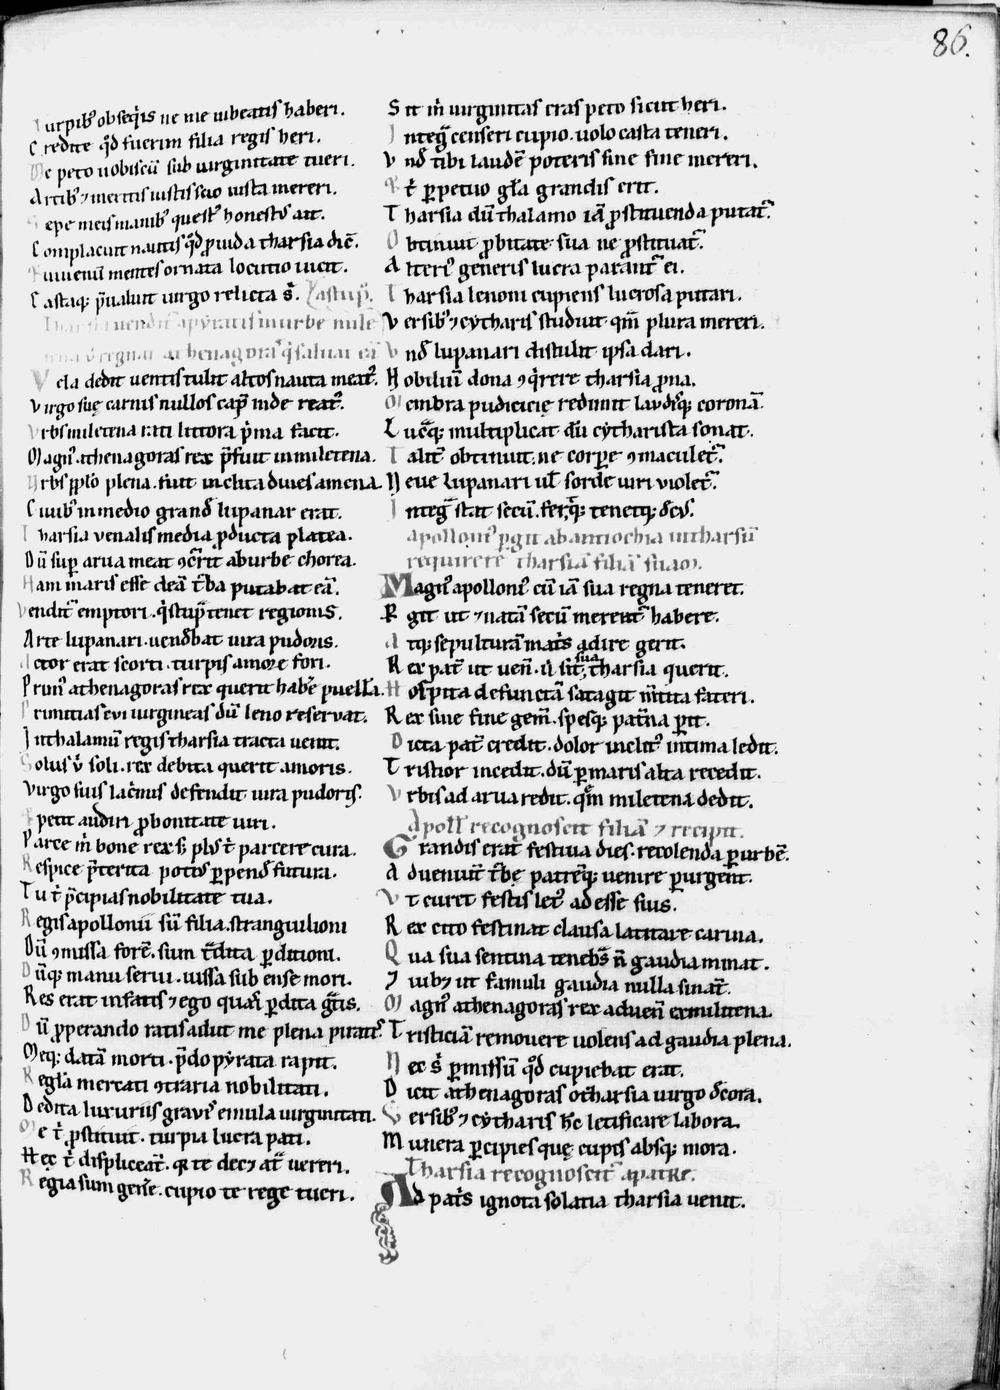 86.
Turpib᷒ obseq̓is ne me iubeatis haberi.
Credite q̓d fuerim filia regis heri.
Me peto uobiscū sub uirginitate tueri.
Artib᷒ ⁊ meritis iustis scio iusta mereri.
Sepe meis manib᷒ quest᷒ honest᷒ ait.
Complacuit nautis q̓d ꝓuida tharsia dic̄.
Et iuuenū mentes ornata locutio uicit.
Castaq; p̄ualuit uirgo relicta s̄.
Tharsia uendit᷑ a pyratis in urbe mile
tena ū regnat athenagoras q̓ saluat eā
Vela dedit uentis tulit altos nauta meat᷒.
Virgo suę carnis nullos cap̄ inde reat᷒.
Vrbs miletena rati littora p̓ma facit.
Magn᷒ athenagoras rex p̄fuit in miletena.
Vrbs pplo plena. fuit inclita diues amena.
Ciuib᷒ in medio grand̄ lupanar erat.
Tharsia venalis media ꝓducta platea.
Dū sup̄ arua meat ꝯcr̄it ab urbe chorea.
Nam maris esse deā t̄ba putabat eā.
Vendit᷑ emptori. q̓ stup̄ tenet regionis.
Arte lupanari. uend̄bat iura pudoris.
Actor erat scorti. turpis amore fori.
Prim᷒ athenagoras rex querit hab̄e puellā.
Primitias eui uirgineas dū leno reseruat.
In thalamū regis tharsia tracta uenit.
Solus ū soli. rex debita querit amoris.
Virgo suis lac̄mis defendit iura pudoris.
Et petit audiri ꝓ bonitate uiri.
Parce m̄ bone rex s; pb᷒ t̄ parcere cura.
Respice p̄terita poti᷒ ꝑpend̄ futura.
Tu t̄ p̄cipias nobilitate tua.
Regis apollonii sū filia. stranguilioni
Dū ꝯmissa forē. sum t̄dita ꝑditioni.
Dūq; manu serui. iussa sub ense mori.
Res erat in fatis ⁊ ego quasi ꝑdita ḡtis.
Dū ꝓperando ratis adiit me plena piratis.
Meq; datā morti. p̄do pyrata rapit.
Regla mercati ꝯtraria nobilitati.
Dedita luxuriis grauit᷑ emula uirginitati.
Me t̄ ꝓstituit. turpia lucra pati.
Hec t̄ displiceat᷑. q̄ te dec; at᷑ uereri.
Regia sum gen̄e. cupio te rege tueri.
Sit m̄ uirginitas cras peto sicut heri.
Integ̓ censeri cupio. uolo casta teneri.
Vnd̄ tibi laudē poteris sine fine mereri.
Et t̄ ꝑpetuo gl̄a grandis erit.
Tharsia dū thalamo iā ꝓstituenda putat᷑.
Obtinuit ꝓbitate sua ne ꝓstituat᷑.
Alteri᷒ generis lucra parant᷑ ei.
Tharsia lenoni cupiens lucrosa putari.
Versib᷒ ⁊ cytharis studuit qm̄ plura mereri.
Vnd̄ lupanari distulit ipsa dari.
Nobiliū dona ꝯq̓rere tharsia ꝓna.
Membra pudicicię redimit laudisq; coronā.
Lucraq; multiplicat dū cytharista sonat.
Talit᷑ obtinuit. ne corpe ꝯmaculet᷑.
Neue lupanari ul̄ sorde uiri violet᷑.
Integ̓ stat secū. fert; tenetq; dec᷒.
Apolloni᷒ ꝑgit ab antiochia in tharsū
requirere tharsiā filiā suam.
Magn᷒ apolloni᷒ cū iā sua regna teneret.
Regit ut ⁊ natā secū merent᷑ habere.
Atq; sepulturā mat̄s adire gerit.
Rex pat᷑ ut uen̄. ū sit sua tharsia querit.
Hospita defunctā satagit m̄tita fateri.
Rex sine fine gem̄. spesq; pat̄na ꝑit.
Dicta pat᷑ credit. dolor inclit᷒ intima ledit.
Tristior incedit. dū ꝑ maris alta recedit.
Vrbis ad arua redit. quē miletena dedit.
Apoll᷒ recognoscit filiā ⁊ recipit.
Grandis erat festiua dies. recolenda ꝑ urbē.
Aduenūt t̄bę patreq; uenire ꝑ urgent.
Vt curet festis let᷒ adesse suis.
Rex cito festinat clausa latitare carina.
Qua sua sentina teneb̄s n̄ gaudia minat.
⁊ iub; ut famuli gaudia nulla sinat᷑.
Magn᷒ athenagoras rex aduen̄ ex militena.
Tristiciā remouere uolens ad gaudia plena.
Nec s̄ ꝑmissū q̓d cupiebat erat.
Dicit athenagoras o tharsia uirgo decora.
Versib᷒ ⁊ cytharis h̄c letificare labora.
Munera ꝑcipies quę cupis absq; mora.
Tharsia recognoscit᷑ a patre.
Ad pat̄s ignota solatia tharsia uenit.